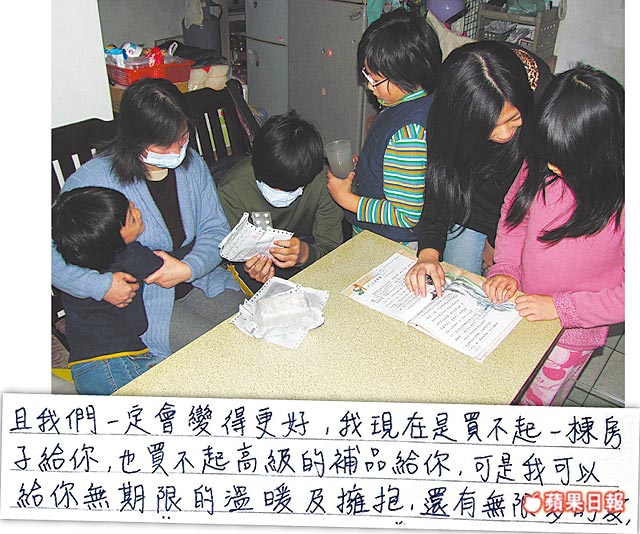 且我們一定會變得更好，我現在是買不起一棟房
子給你，也買不起高級的補品給你，可是我可以
給你無期限的溫暖及擁抱，還有無限多的愛，
蘋果日報